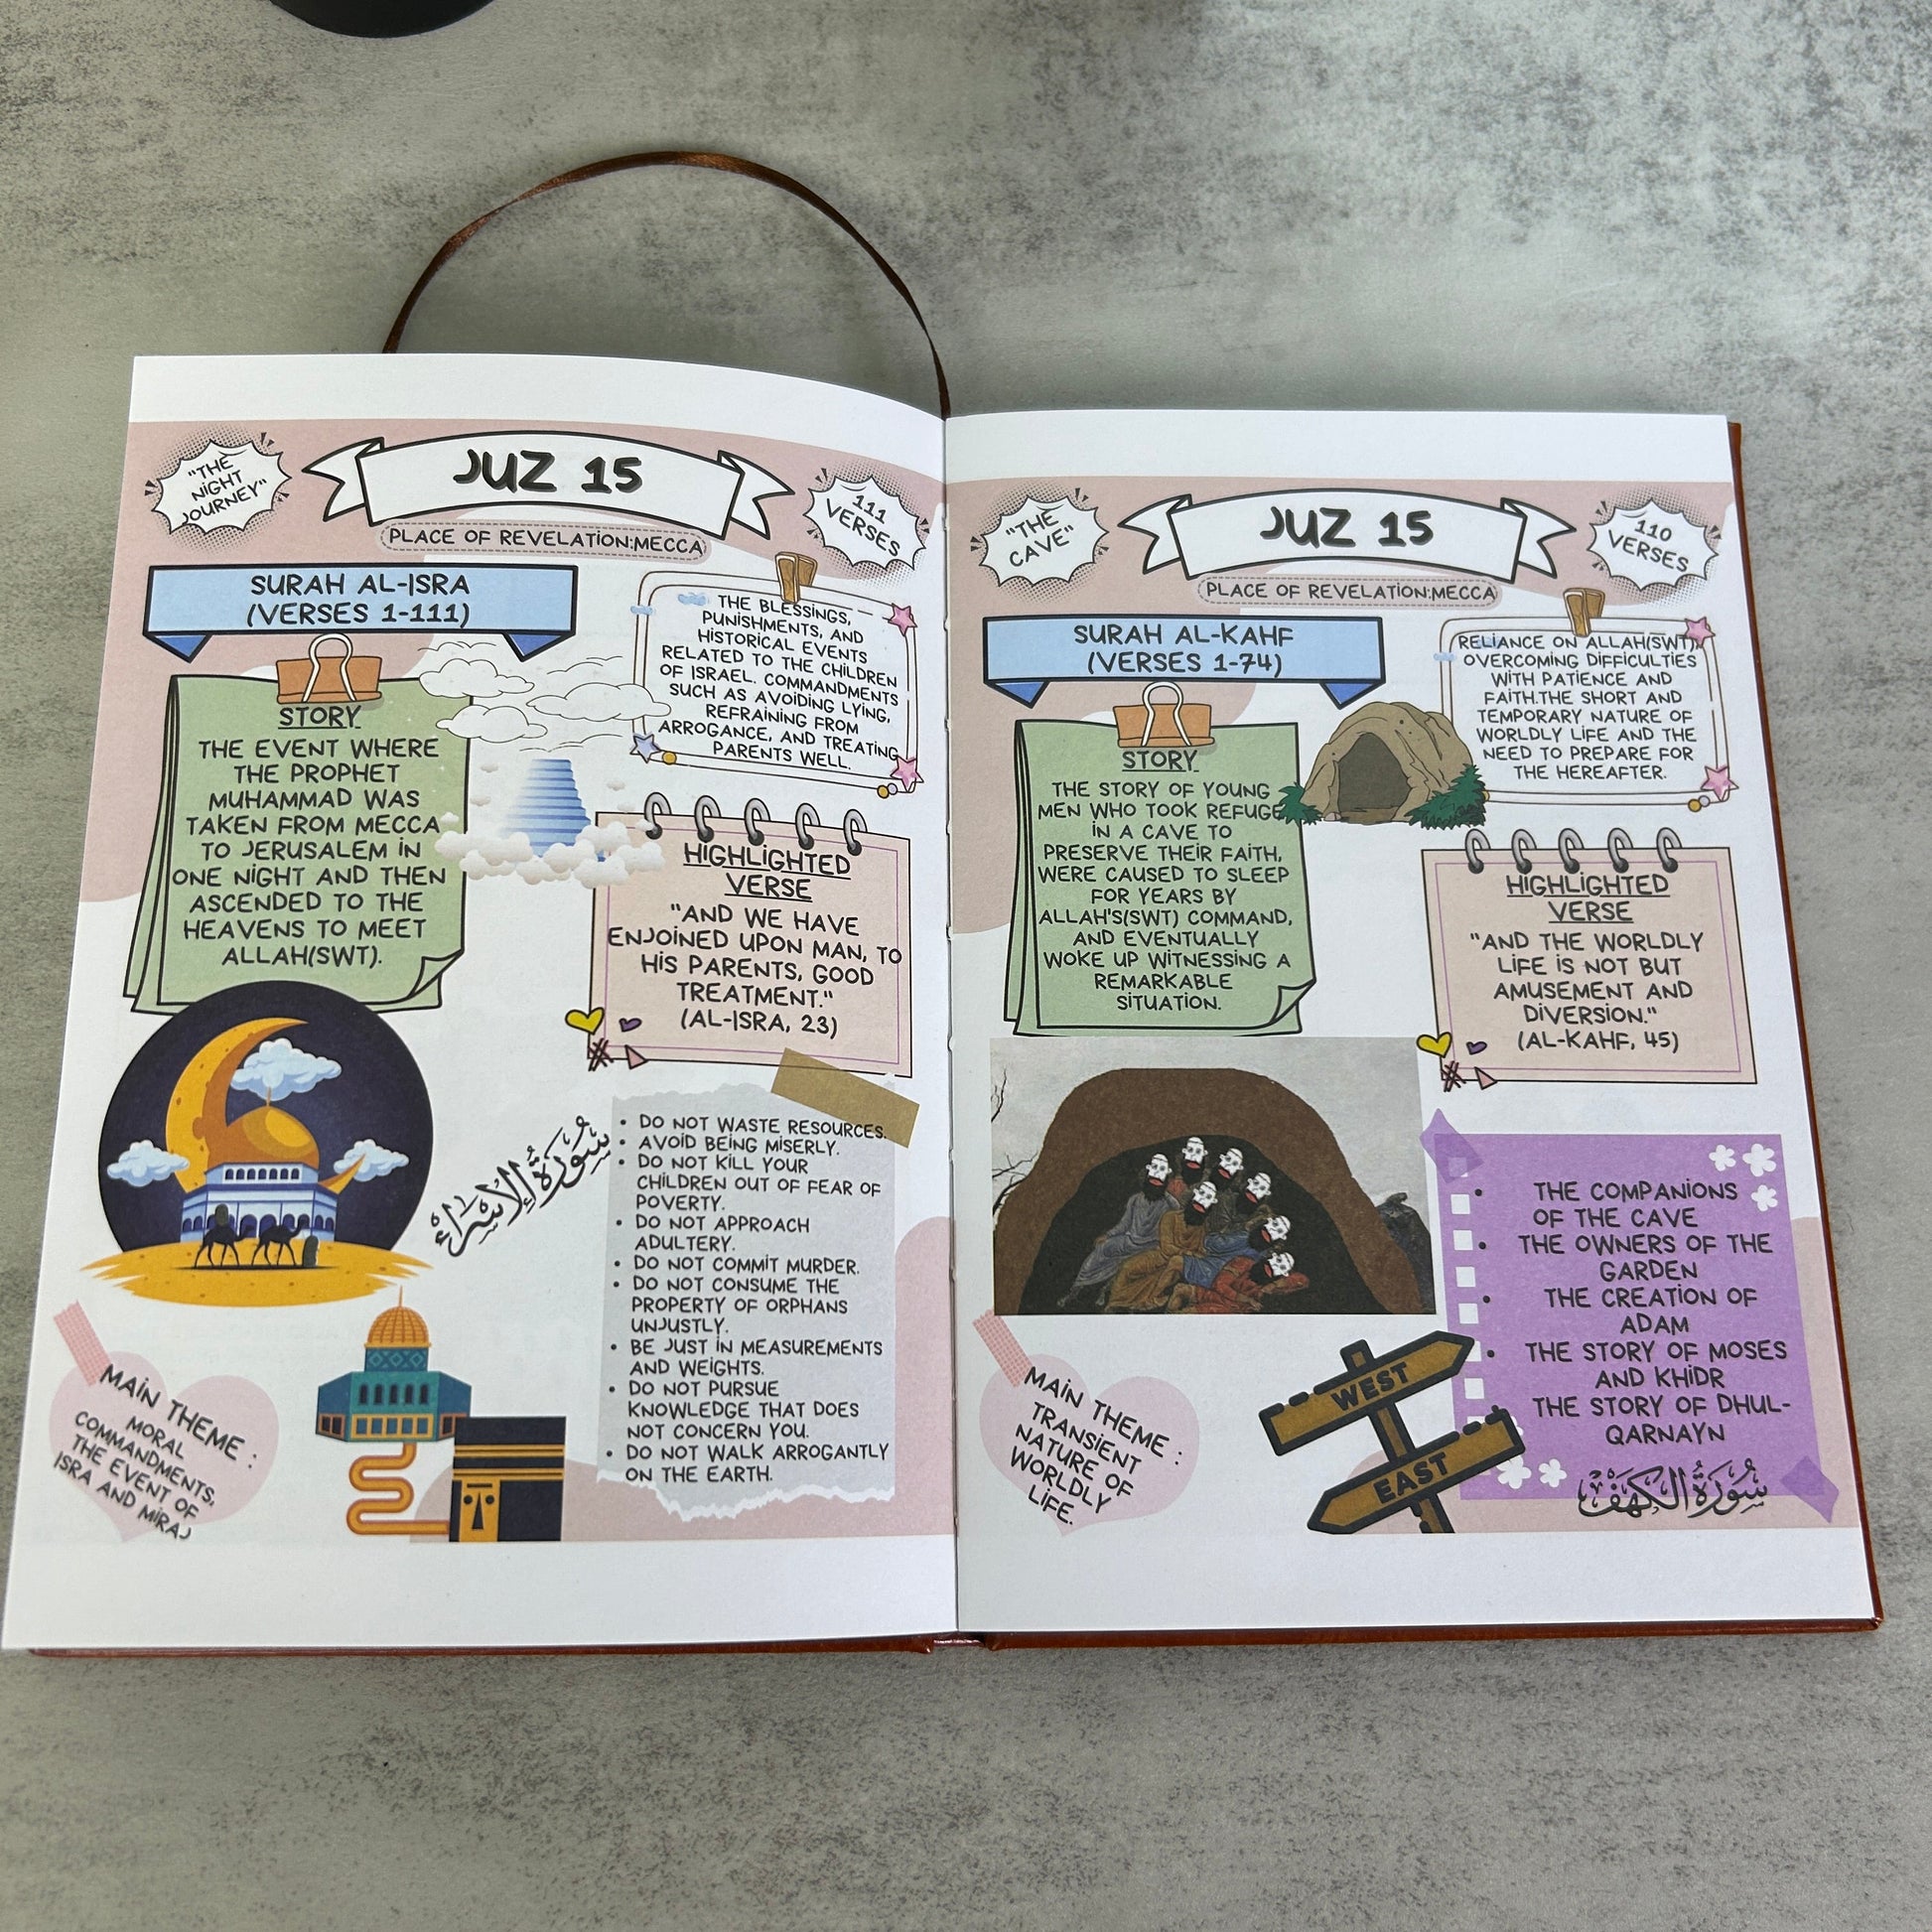 "THE
NIGHT
JOURNEY"
JUZ 15
111
VERSES
PLACE OF REVELATION:MECCA
SURAH AL-ISRA
(VERSES 1-111)
STORY
THE EVENT WHERE
THE PROPHET
MUHAMMAD WAS
TAKEN FROM MECCA
TO JERUSALEM IN
ONE NIGHT AND THEN
ASCENDED TO THE
HEAVENS TO MEET
ALLAH(SWT).
THE BLESSINGS,
PUNISHMENTS, AND
HISTORICAL EVENTS
RELATED TO THE CHILDREN
OF ISRAEL. COMMANDMENTS
SUCH AS AVOIDING LYING,
REFRAINING FROM
ARROGANCE, AND TREATING
PARENTS WELL.
HIGHLIGHTED
VERSE
"AND WE HAVE
ENJOINED UPON MAN, TO
HIS PARENTS, GOOD
TREATMENT."
(AL-ISRA, 23)
سُورَةُ الإِسْرَاءِ
• DO NOT WASTE RESOURCES.
• AVOID BEING MISERLY.
• DO NOT KILL YOUR
CHILDREN OUT OF FEAR OF
POVERTY.
• DO NOT APPROACH
ADULTERY.
• DO NOT COMMIT MURDER.
• DO NOT CONSUME THE
PROPERTY OF ORPHANS
UNJUSTLY.
• BE JUST IN MEASUREMENTS
AND WEIGHTS.
• DO NOT PURSUE
KNOWLEDGE THAT DOES
NOT CONCERN YOU.
• DO NOT WALK ARROGANTLY
ON THE EARTH.
MAIN THEME :
MORAL
COMMANDMENTS,
THE EVENT OF
ISRA AND MIRAJ
"THE
CAVE"
JUZ 15
110
VERSES
PLACE OF REVELATION:MECCA
SURAH AL-KAHF
(VERSES 1-74)
STORY
THE STORY OF YOUNG
MEN WHO TOOK REFUGE
IN A CAVE TO
PRESERVE THEIR FAITH,
WERE CAUSED TO SLEEP
FOR YEARS BY
ALLAH'S(SWT) COMMAND,
AND EVENTUALLY
WOKE UP WITNESSING A
REMARKABLE
SITUATION.
RELIANCE ON ALLAH(SWT),
OVERCOMING DIFFICULTIES
WITH PATIENCE AND
FAITH.THE SHORT AND
TEMPORARY NATURE OF
WORLDLY LIFE AND THE
NEED TO PREPARE FOR
THE HEREAFTER.
HIGHLIGHTED
VERSE
"AND THE WORLDLY
LIFE IS NOT BUT
AMUSEMENT AND
DIVERSION."
(AL-KAHF, 45)
• THE COMPANIONS
OF THE CAVE
• THE OWNERS OF THE
GARDEN
• THE CREATION OF
ADAM
• THE STORY OF MOSES
AND KHIDR
THE STORY OF DHUL-
QARNAYN
سُورَةُ الكَهْفِ
MAIN THEME :
TRANSIENT
NATURE OF
WORLDLY
LIFE.
WEST
EAST